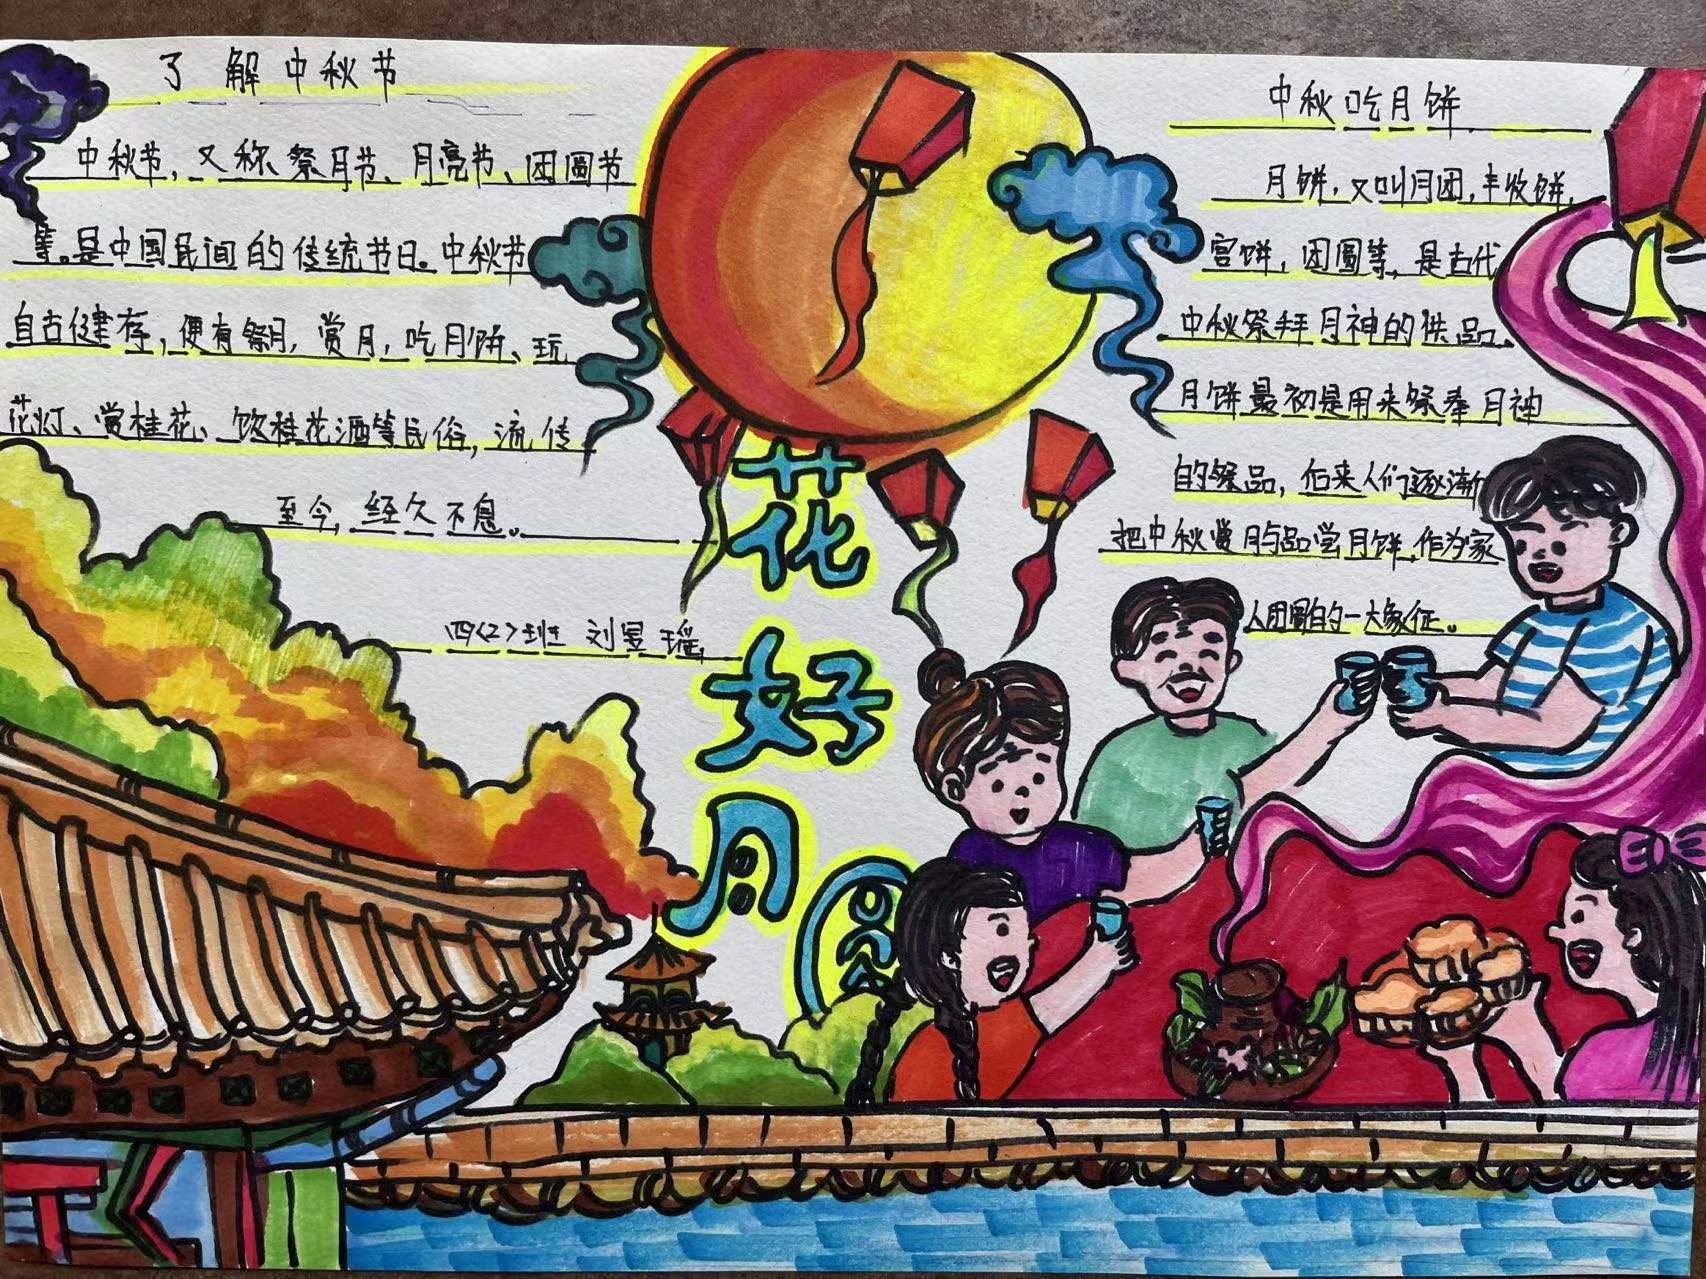 了解中秋节
中秋节，又称祭月节、月亮节、团圆节
等。是中国民间的传统节日。中秋节
自古健存，便有祭月，赏月，吃月饼、玩
花灯、赏桂花、饮桂花酒等民俗，流传
至今，经久不息。
四〈2〉班 刘昱瑶
花好月圆
中秋吃月饼
月饼，又叫月团，丰收饼，
宫饼，团圆等，是古代
中秋祭拜月神的供品。
月饼最初是用来祭奉月神
的祭品，后来人们逐渐
把中秋赏月与品尝月饼，作为家
人团圆的一大象征。